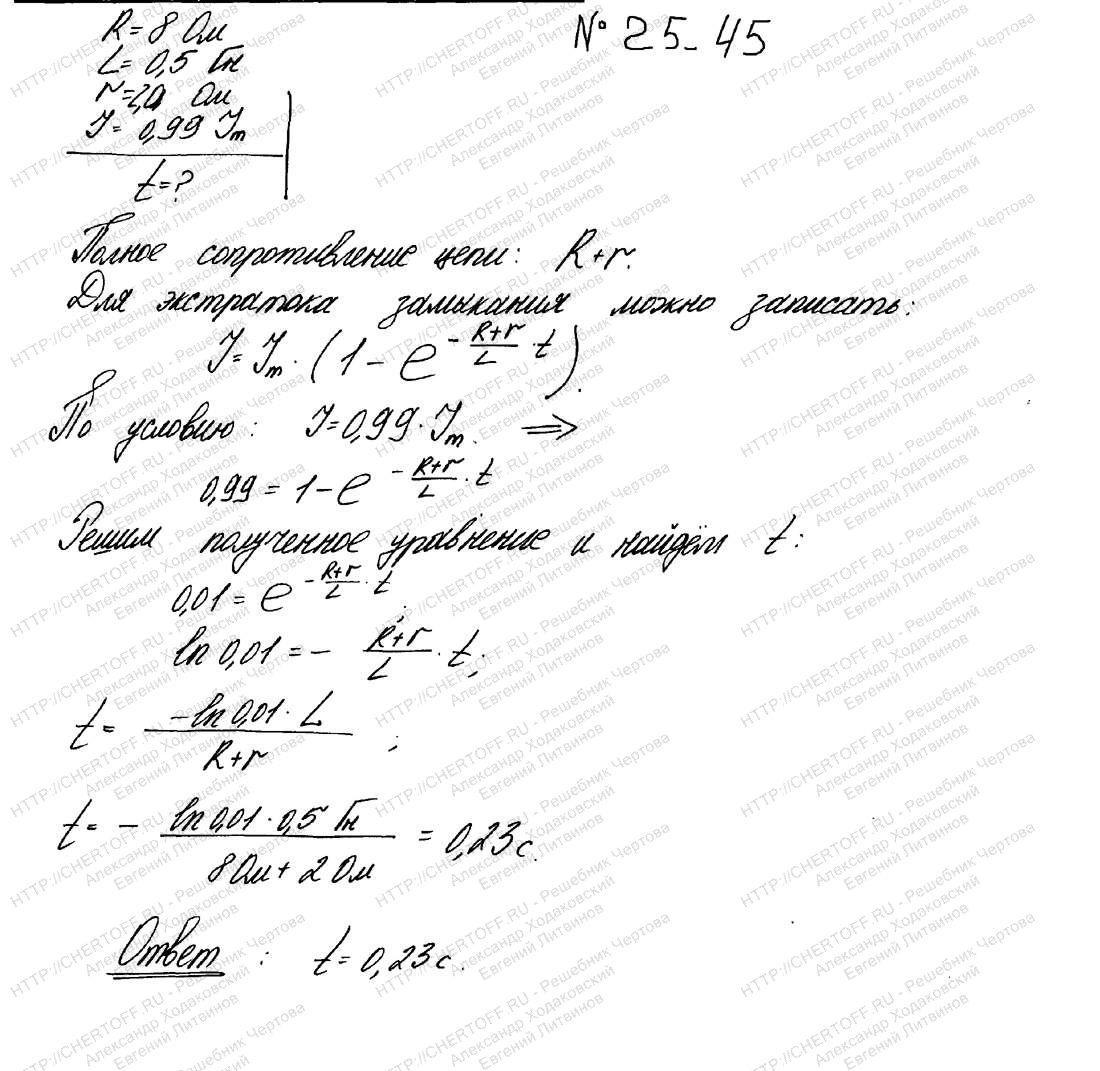 R = 8 Ом
№ 25-45
L = 0,5 Гн
r = 2,0 Ом
I = 0,99 Iₘ
t = ?
Полное сопротивление цепи: R+r.
Для экстратока замыкания можно записать:
I = Iₘ · (1 - e^(-(R+r)/L · t)).
По условию: I = 0,99 · Iₘ. ⟹
0,99 = 1 - e^(-(R+r)/L · t)
Решим полученное уравнение и найдём t:
0,01 = e^(-(R+r)/L · t);
ln 0,01 = - (R+r)/L · t;
t = (-ln 0,01 · L)/(R+r) ;
t = - (ln 0,01 · 0,5 Гн)/(8 Ом + 2 Ом) = 0,23 с.
Ответ : t = 0,23 с.
HTTP://CHERTOFF.RU - Решебник Чертова
Александр Ходаковский
Евгений Литвинов